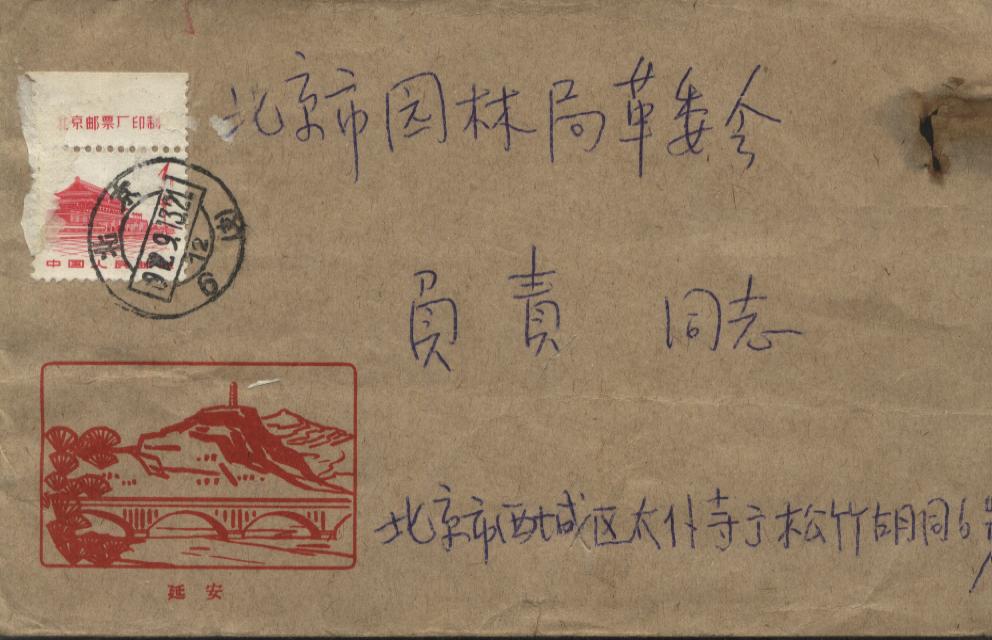 北京市园林局革委会
北京邮票厂印制
中国人民邮政
北京
1972.9.13.21
12
6
員責 同志
北京市西城区太仆寺于松竹胡同6
延安